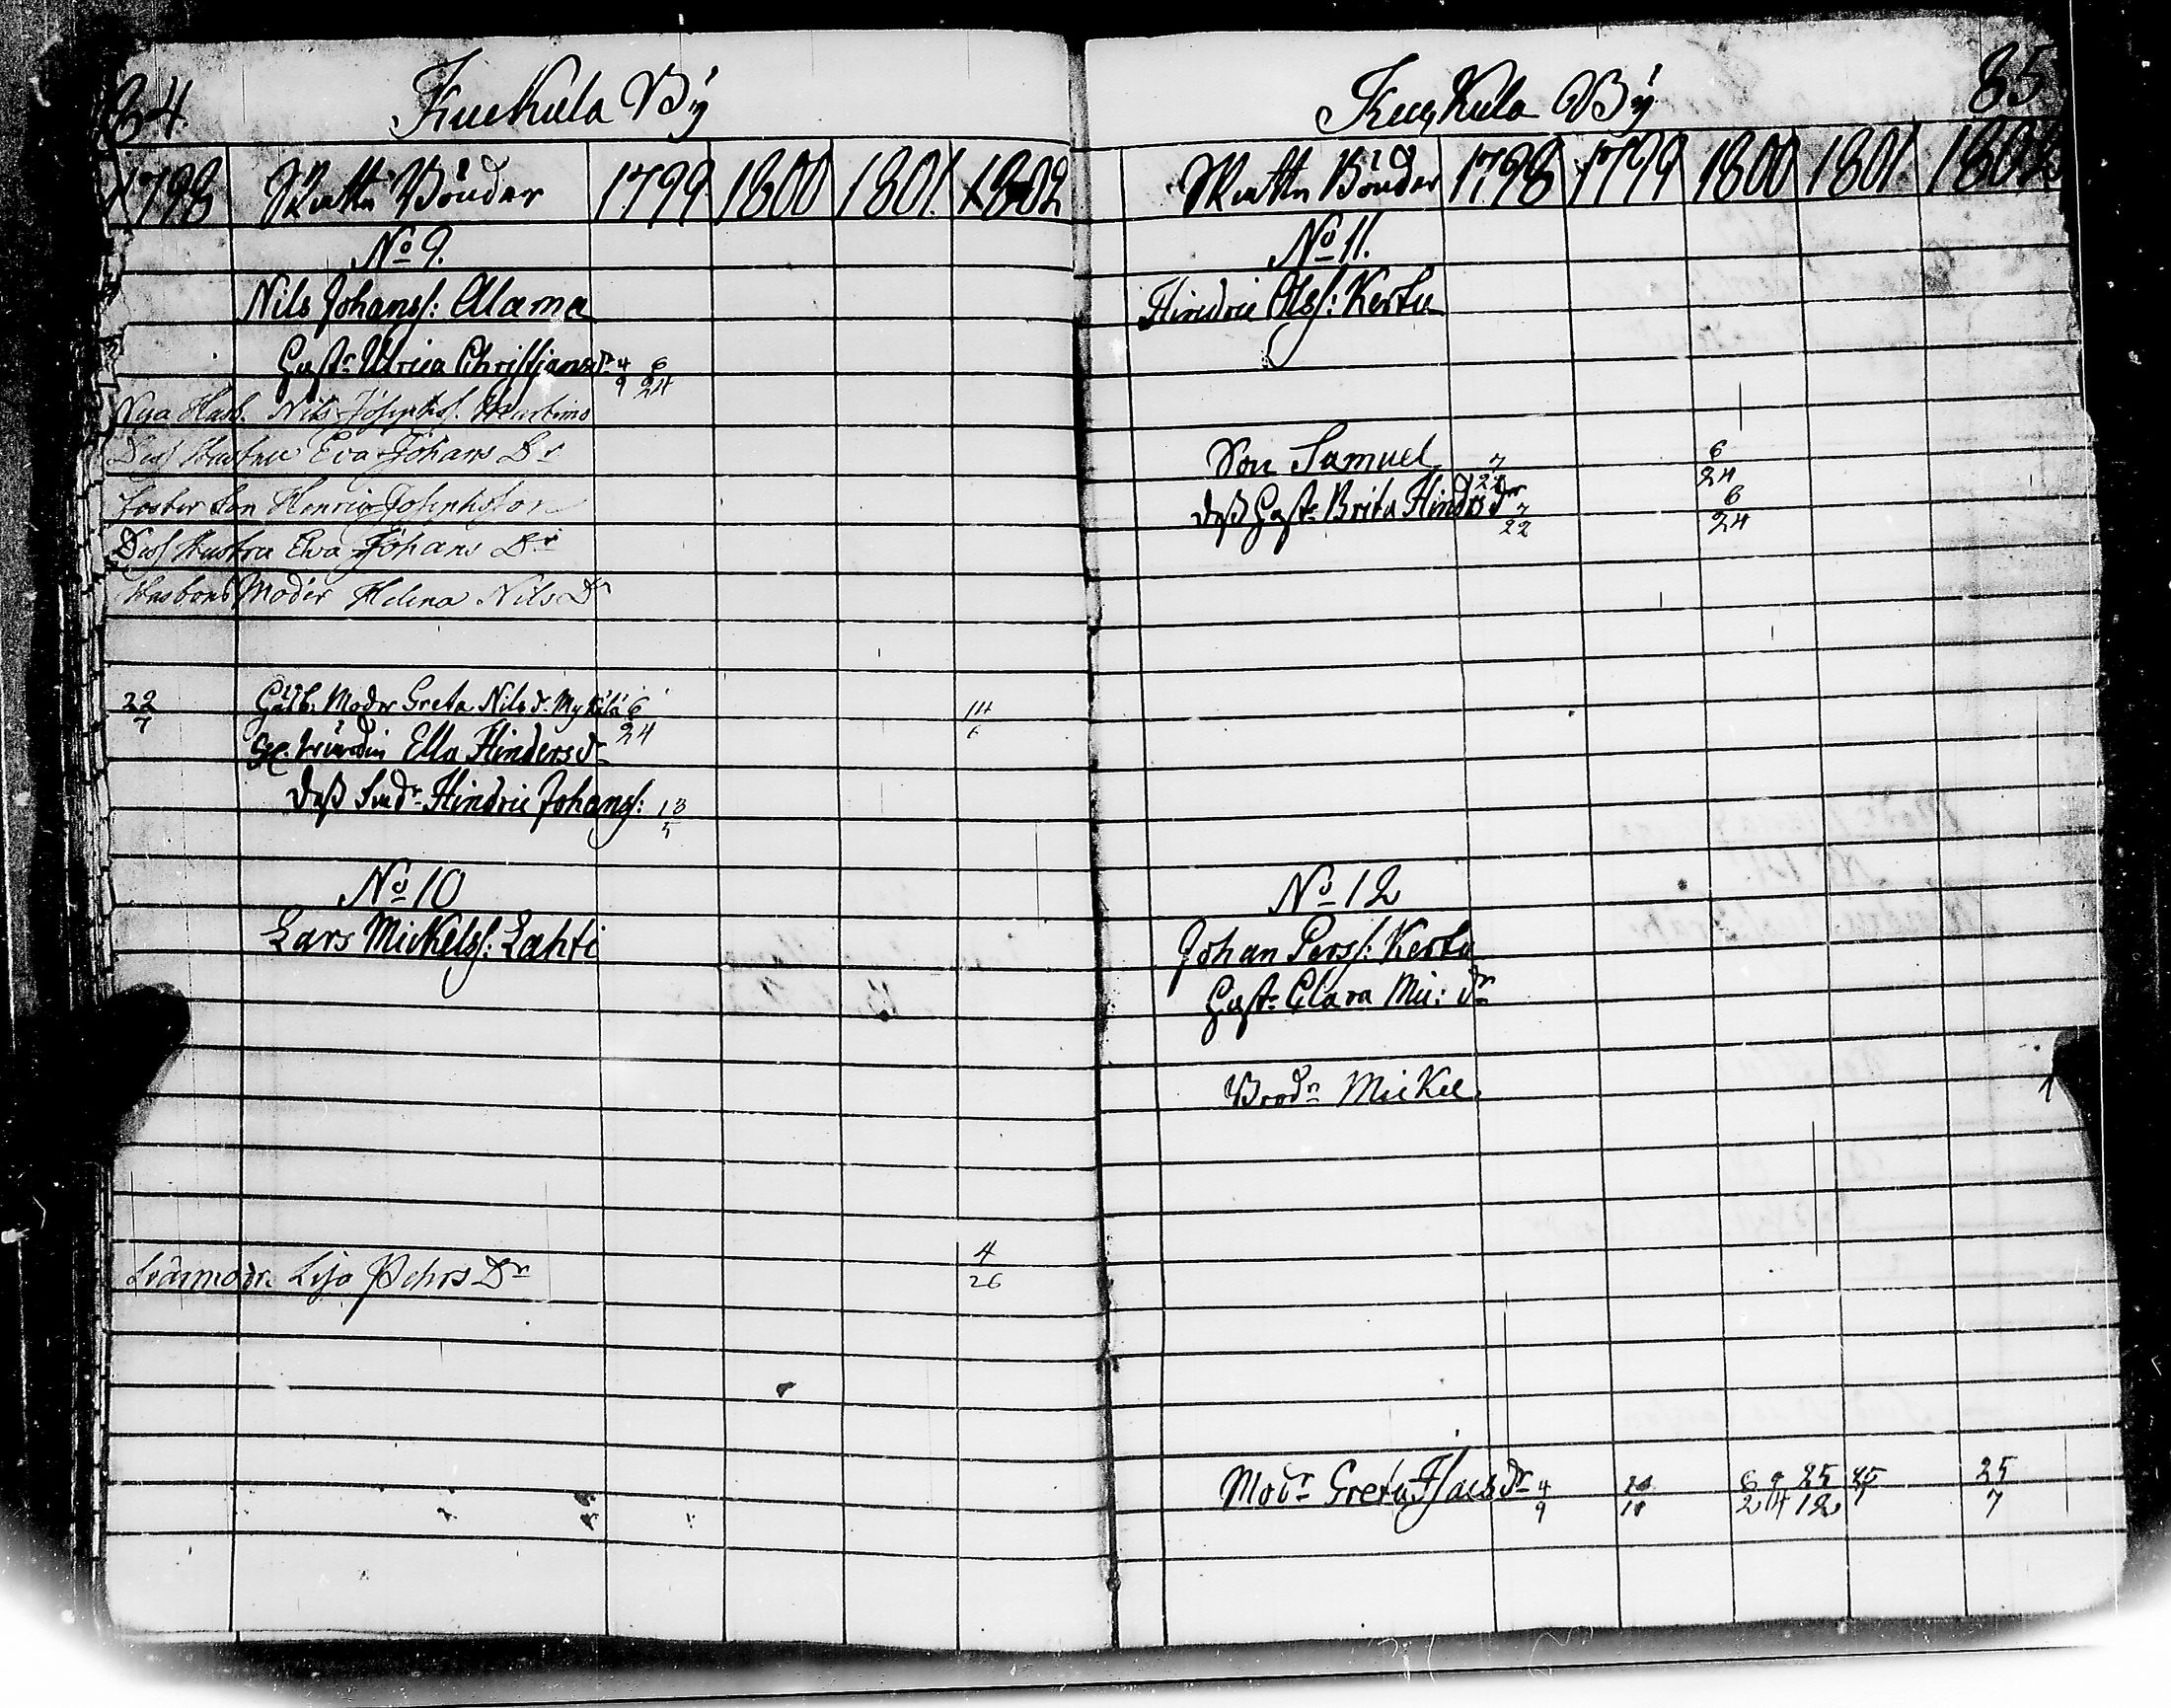 84.
Kuckula By
1798 Skatte Bönder 1799 1800 1801. 1802
No 9.
Nils Johanss: Alama
Hust: Ulrica Christjansdr 4/9 6/24
Nya Husb. Nils Johanss.
Dess Hustru Eva Johans Dr
Foster Son Henric Johansson
Dess Hustru Eva Johans Dr
Husbons Moder Helena Nils Dr
22/7 Moder Greta Nilsdr 6/24 14/6
Ella Hindersdr
Dess Hindric Johanss: 13/5
No 10
Lars Mickelss: Lahti
Svärmodr. Lisa Pehrs Dr 4/26
85
Kuckula By
Skatte Bönder 1798 1799 1800 1801. 1802
No 11.
Hindric Olss: Kertu
Son Samuel 7/22 6/24
Dess Hust: Brita Hindrsdr 7/22 6/24
No 12
Johan Perss: Kertu
Hust: Clara Mic: dr
Brodr Mickel
Modr Greta Isacsdr 4/9 6/24 25/12 25/7